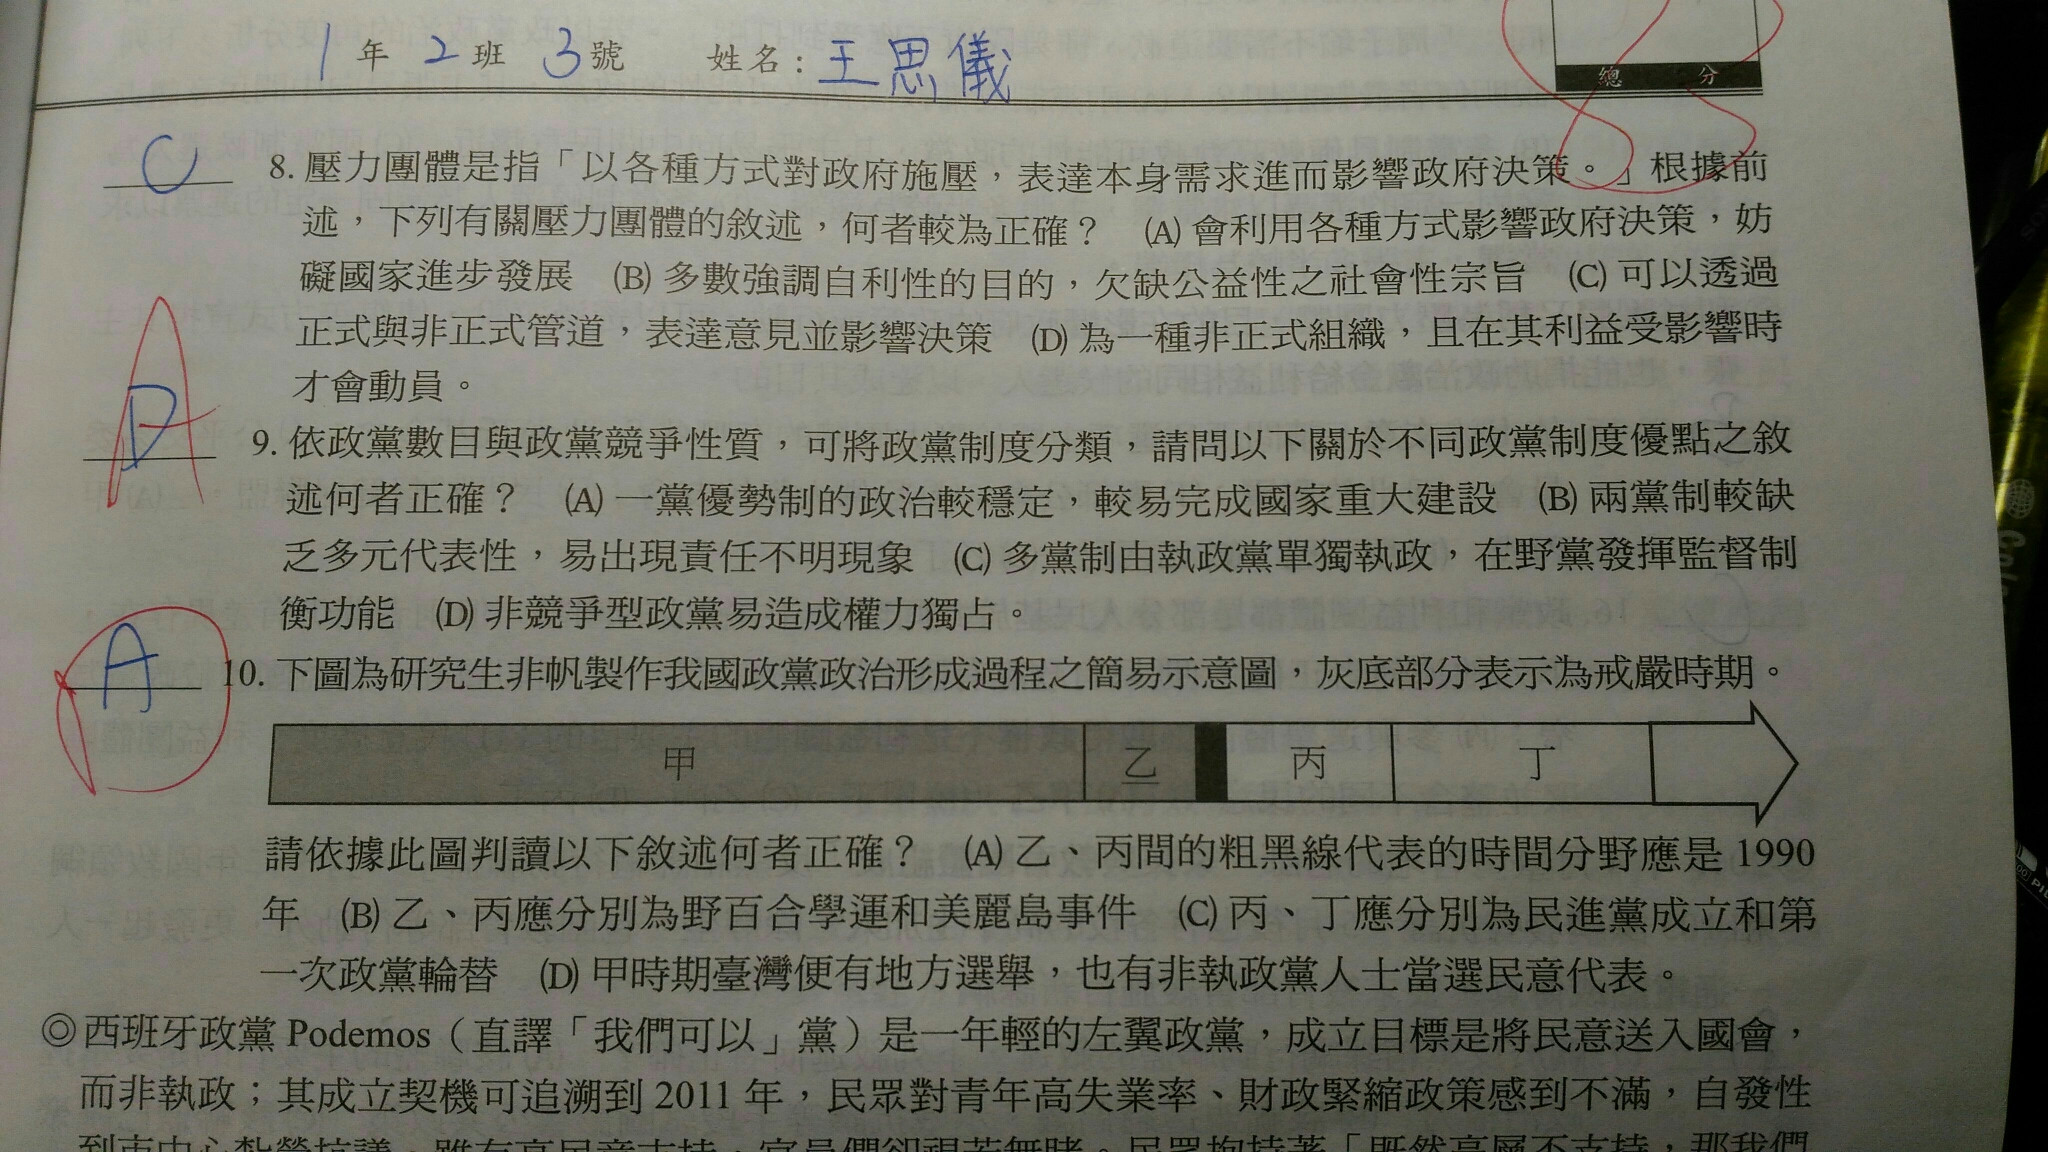 1年2班3號 姓名：王思儀
85
總分
C 8. 壓力團體是指「以各種方式對政府施壓，表達本身需求進而影響政府決策。」根據前
述，下列有關壓力團體的敘述，何者較為正確？ (A) 會利用各種方式影響政府決策，妨
礙國家進步發展 (B) 多數強調自利性的目的，欠缺公益性之社會性宗旨 (C) 可以透過
正式與非正式管道，表達意見並影響決策 (D) 為一種非正式組織，且在其利益受影響時
才會動員。
A D 9. 依政黨數目與政黨競爭性質，可將政黨制度分類，請問以下關於不同政黨制度優點之敘
述何者正確？ (A) 一黨優勢制的政治較穩定，較易完成國家重大建設 (B) 兩黨制較缺
乏多元代表性，易出現責任不明現象 (C) 多黨制由執政黨單獨執政，在野黨發揮監督制
衡功能 (D) 非競爭型政黨易造成權力獨占。
A 10. 下圖為研究生非帆製作我國政黨政治形成過程之簡易示意圖，灰底部分表示為戒嚴時期。
甲 乙 丙 丁
請依據此圖判讀以下敘述何者正確？ (A) 乙、丙間的粗黑線代表的時間分野應是 1990
年 (B) 乙、丙應分別為野百合學運和美麗島事件 (C) 丙、丁應分別為民進黨成立和第
一次政黨輪替 (D) 甲時期臺灣便有地方選舉，也有非執政黨人士當選民意代表。
◎西班牙政黨 Podemos（直譯「我們可以」黨）是一年輕的左翼政黨，成立目標是將民意送入國會，
而非執政；其成立契機可追溯到 2011 年，民眾對青年高失業率、財政緊縮政策感到不滿，自發性
到市中心紮營抗議，雖有高民意支持，官員們卻視若無睹。民眾抱持著「既然高層不支持，那我們